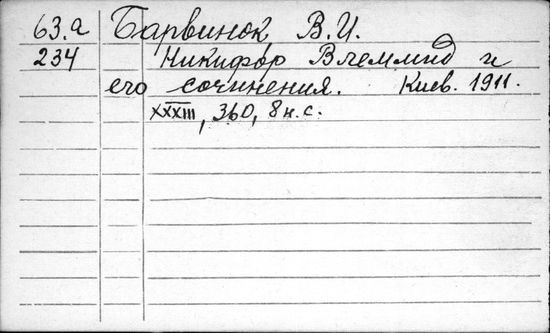 63.а Барвинок В.И.
234 Никифор Влеммид и
его сочинения. Киев. 1911.
XXXIII, 360, 8 н.с.